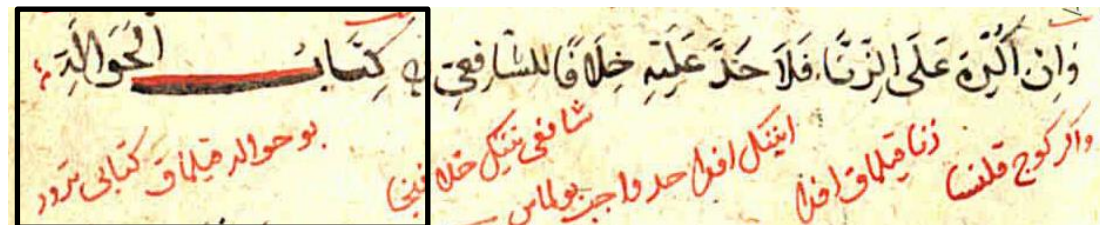 وَاِنْ اُكْرِهَ عَلَى الزِّنَا فَلَا حَدَّ عَلَيْهِ خِلَافًا لِلشَّافِعِيِّ كِتَابُ الْحَوَالَةِ
واكر كوج قلنسا زنا قيلماق اوزا اننيكل اوزا حد واجب بولماس شافعى ننيكل خلافيخا بو حواله قيلماق كتابى تورور